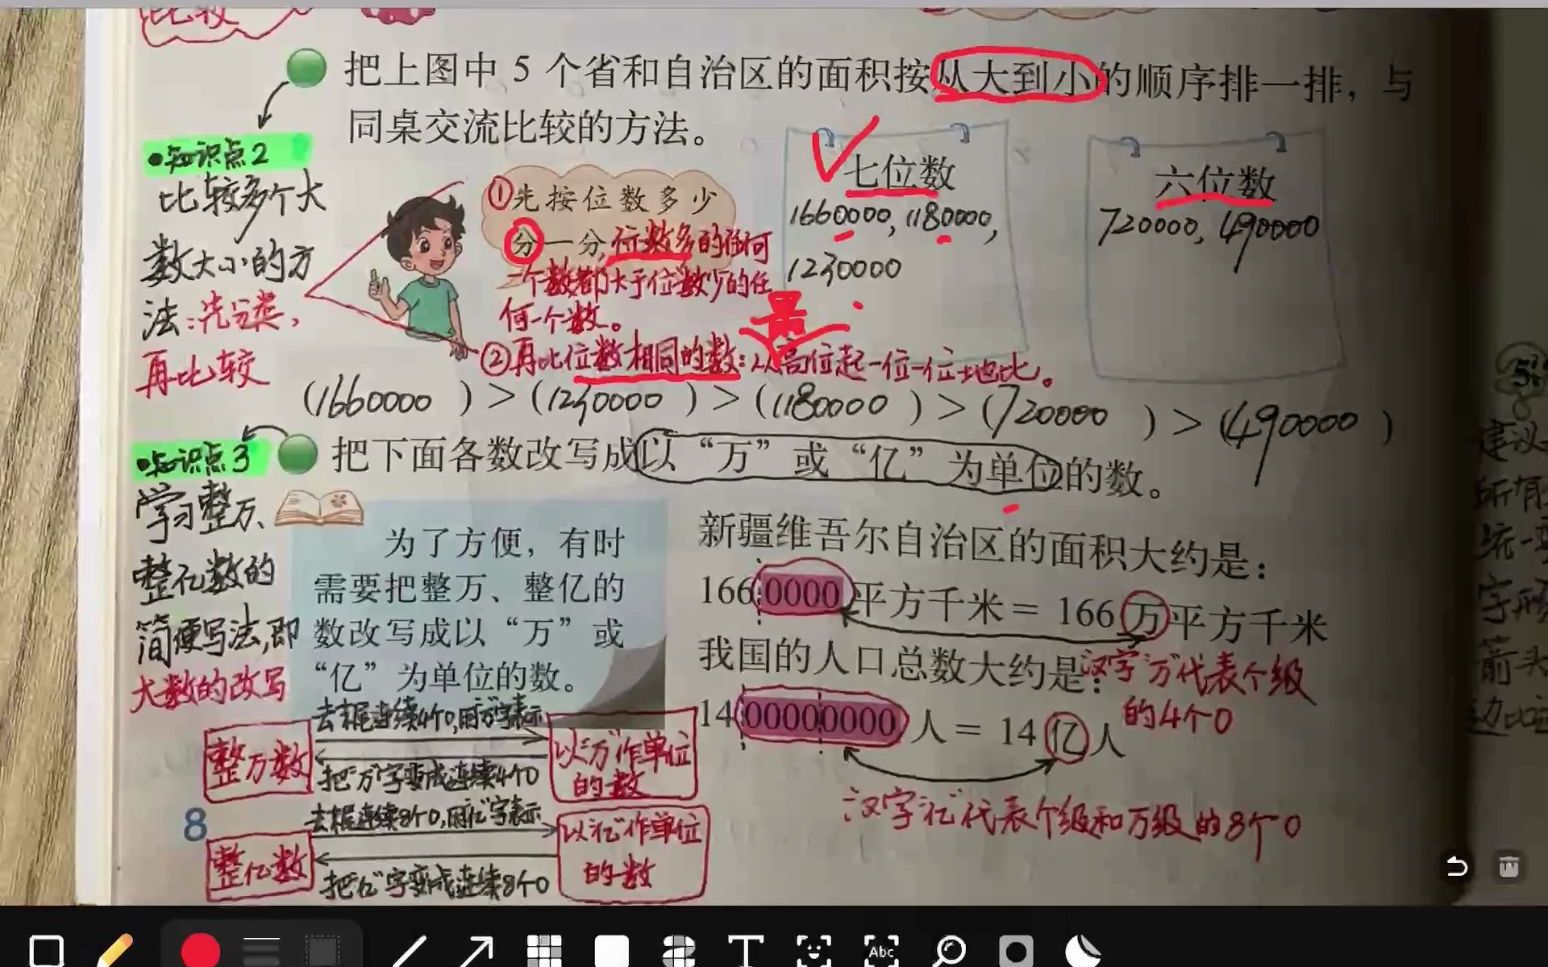 比较
把上图中 5 个省和自治区的面积按从大到小的顺序排一排，与
同桌交流比较的方法。
知识点2
比较多个大
数大小的方
法:先分类，
再比较
①先按位数多少
分一分,位数多的任何
一个数都大于位数少的任
何一个数。
最
②再比位数相同的数:从高位起一位一位地比。
七位数
1660000, 1180000,
1230000
六位数
720000, 490000
(1660000)>(1230000)>(1180000)>(720000)>(490000)
知识点3
把下面各数改写成以“万”或“亿”为单位的数。
学习整万、
整亿数的
简便写法,即
大数的改写
为了方便，有时
需要把整万、整亿的
数改写成以“万”或
“亿”为单位的数。
新疆维吾尔自治区的面积大约是：
1660000平方千米＝166万平方千米
我国的人口总数大约是：
汉字“万”代表个级
的4个0
1400000000人＝14亿人
汉字“亿”代表个级和万级的8个0
整万数
去掉连续4个0,用“万”字表示
把“万”字变成连续4个0
以“万”作单位
的数
整亿数
去掉连续8个0,用“亿”字表示
把“亿”字变成连续8个0
以“亿”作单位
的数
8
建议
所有
统一
字形
箭头
边比
T
Abc